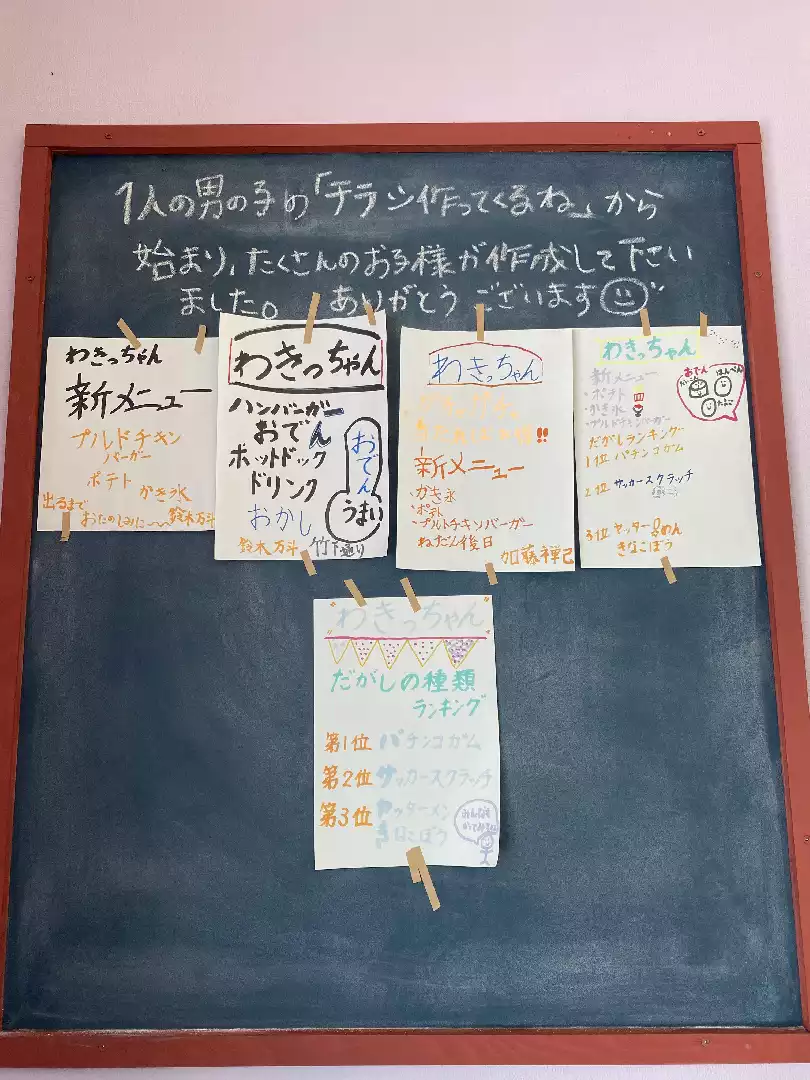 1人の男の子の「チラシ作ってくるね」から
始まり、たくさんのお子様が作成して下さい
ました。 ありがとうございます
わきっちゃん
新メニュー
プルドチキン
バーガー
ポテト かき氷
出るまで
おたのしみに〜〜 鈴木万斗
わきっちゃん
ハンバーガー
おでん
ホットドック
ドリンク
おかし
おでん
うまい
鈴木万斗 竹下通り
わきっちゃん
新メニュー
・かき氷
・ポテト
・プルトチキンバーガー
ねだん後日
加藤禅己
わきっちゃん
新メニュー
・ポテト
・かき氷
・プルドチキンバーガー
おでん
はんぺん
たまご
だがしランキング
1位 パチンコガム
2位 サッカースクラッチ
3位 ヤッターめん
きなこぼう
わきっちゃん
だがしの種類
ランキング
第1位 パチンコガム
第2位 サッカースクラッチ
第3位 ヤッターメン
きなこぼう